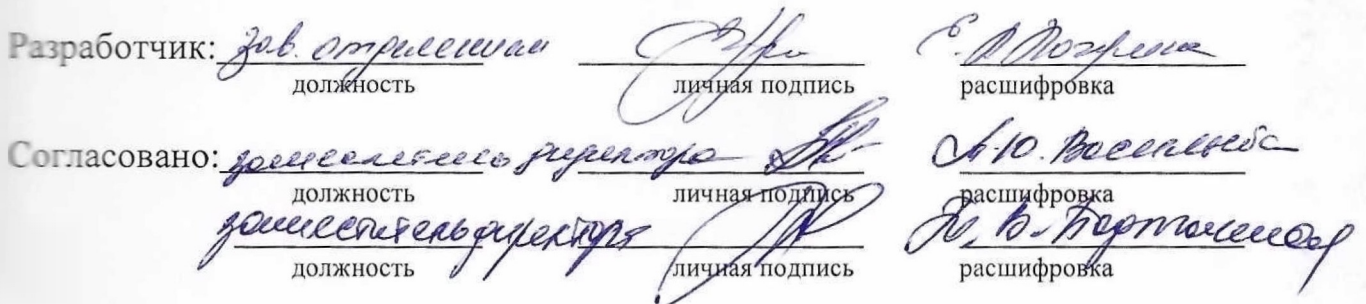 Разработчик: зав. отделением
должность личная подпись расшифровка
Согласовано: заместитель директора А.Ю. Васильева
должность личная подпись расшифровка
заместитель директора
должность личная подпись расшифровка